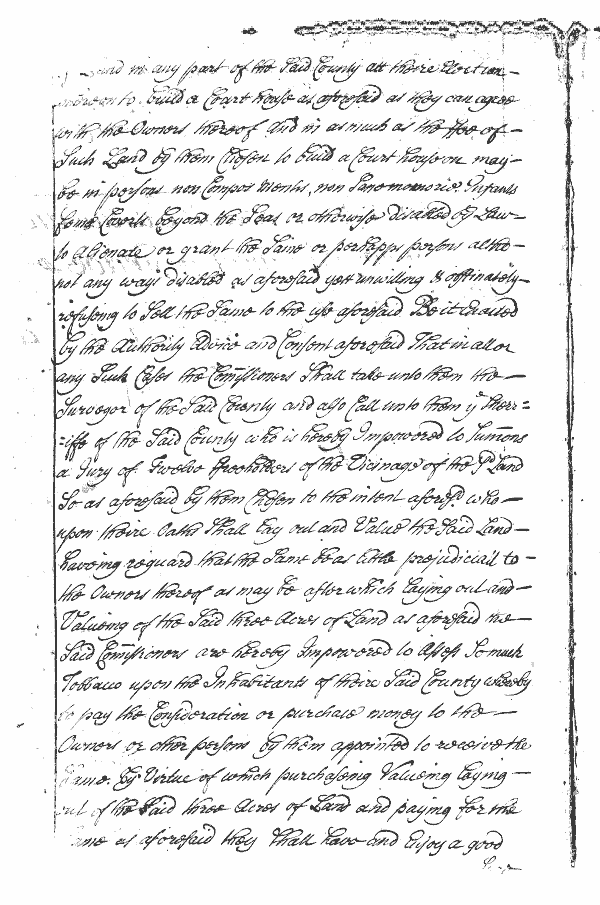 and in any part of the Said County att theire Election
to build a Court house as aforesaid as they can agree
with the Owners thereof And in as much as the ffee of
Such Land by them Chosen to build a Court house on may
be in persons non Compos Mentis, non Sane memorie, Infants
feme Coverts beyond the Seas or otherwise disabled by Law
to Alienate or grant the Same or perhapps persons altho
not any ways disabled as aforesaid yett unwilling & obstinately
refuseing to Sell the Same to the use aforesaid Be it Enacted
by the Authority Advice and Consent aforesaid That in all or
any Such Cases the Comissioners Shall take unto them the
Surveyor of the Said County and also Call unto them ye Sherr=
=iffe of the Said County who is hereby Impowered to Summons
a Jury of Twelve ffreeholders of the Vicinage of the sd Land
So as aforesaid by them Chosen to the intent aforesd who
upon theire Oaths Shall Lay out and Value the Said Land
haveing reguard that the Same be as little prejudiciall to
the Owners thereof as may be after which Laying out and
Valueing of the Said three Acres of Land as aforesaid the
Said Comissioners are hereby Impowered to Assess So much
Tobbacco upon the Inhabitants of theire Said County whereby
to pay the Consideration or purchase money to the
Owners or other persons by them appointed to receive the
Same. By Virtue of which purchaseing Valueing Laying
out of the Said three Acres of Land and paying for the
Same as aforesaid they Shall have and Enjoy a good